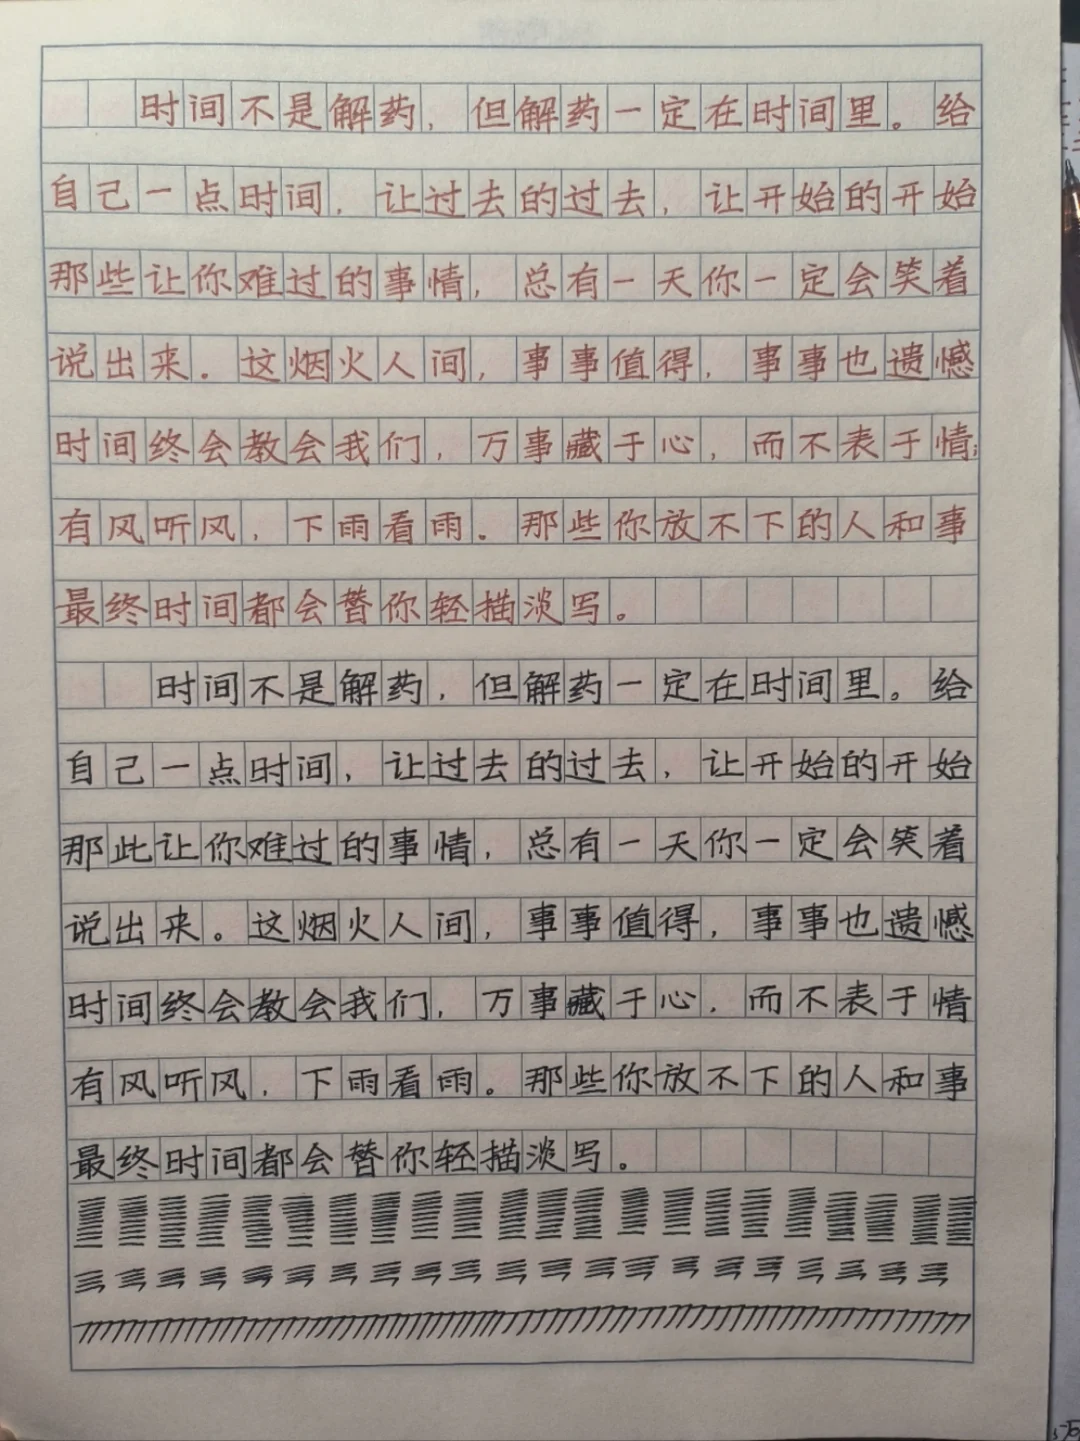 时间不是解药，但解药一定在时间里。给
自己一点时间，让过去的过去，让开始的开始
那些让你难过的事情，总有一天你一定会笑着
说出来。这烟火人间，事事值得，事事也遗憾
时间终会教会我们，万事藏于心，而不表于情；
有风听风，下雨看雨。那些你放不下的人和事
最终时间都会替你轻描淡写。
时间不是解药，但解药一定在时间里。给
自己一点时间，让过去的过去，让开始的开始
那此让你难过的事情，总有一天你一定会笑着
说出来。这烟火人间，事事值得，事事也遗憾
时间终会教会我们，万事藏于心，而不表于情
有风听风，下雨看雨。那些你放不下的人和事
最终时间都会替你轻描淡写。